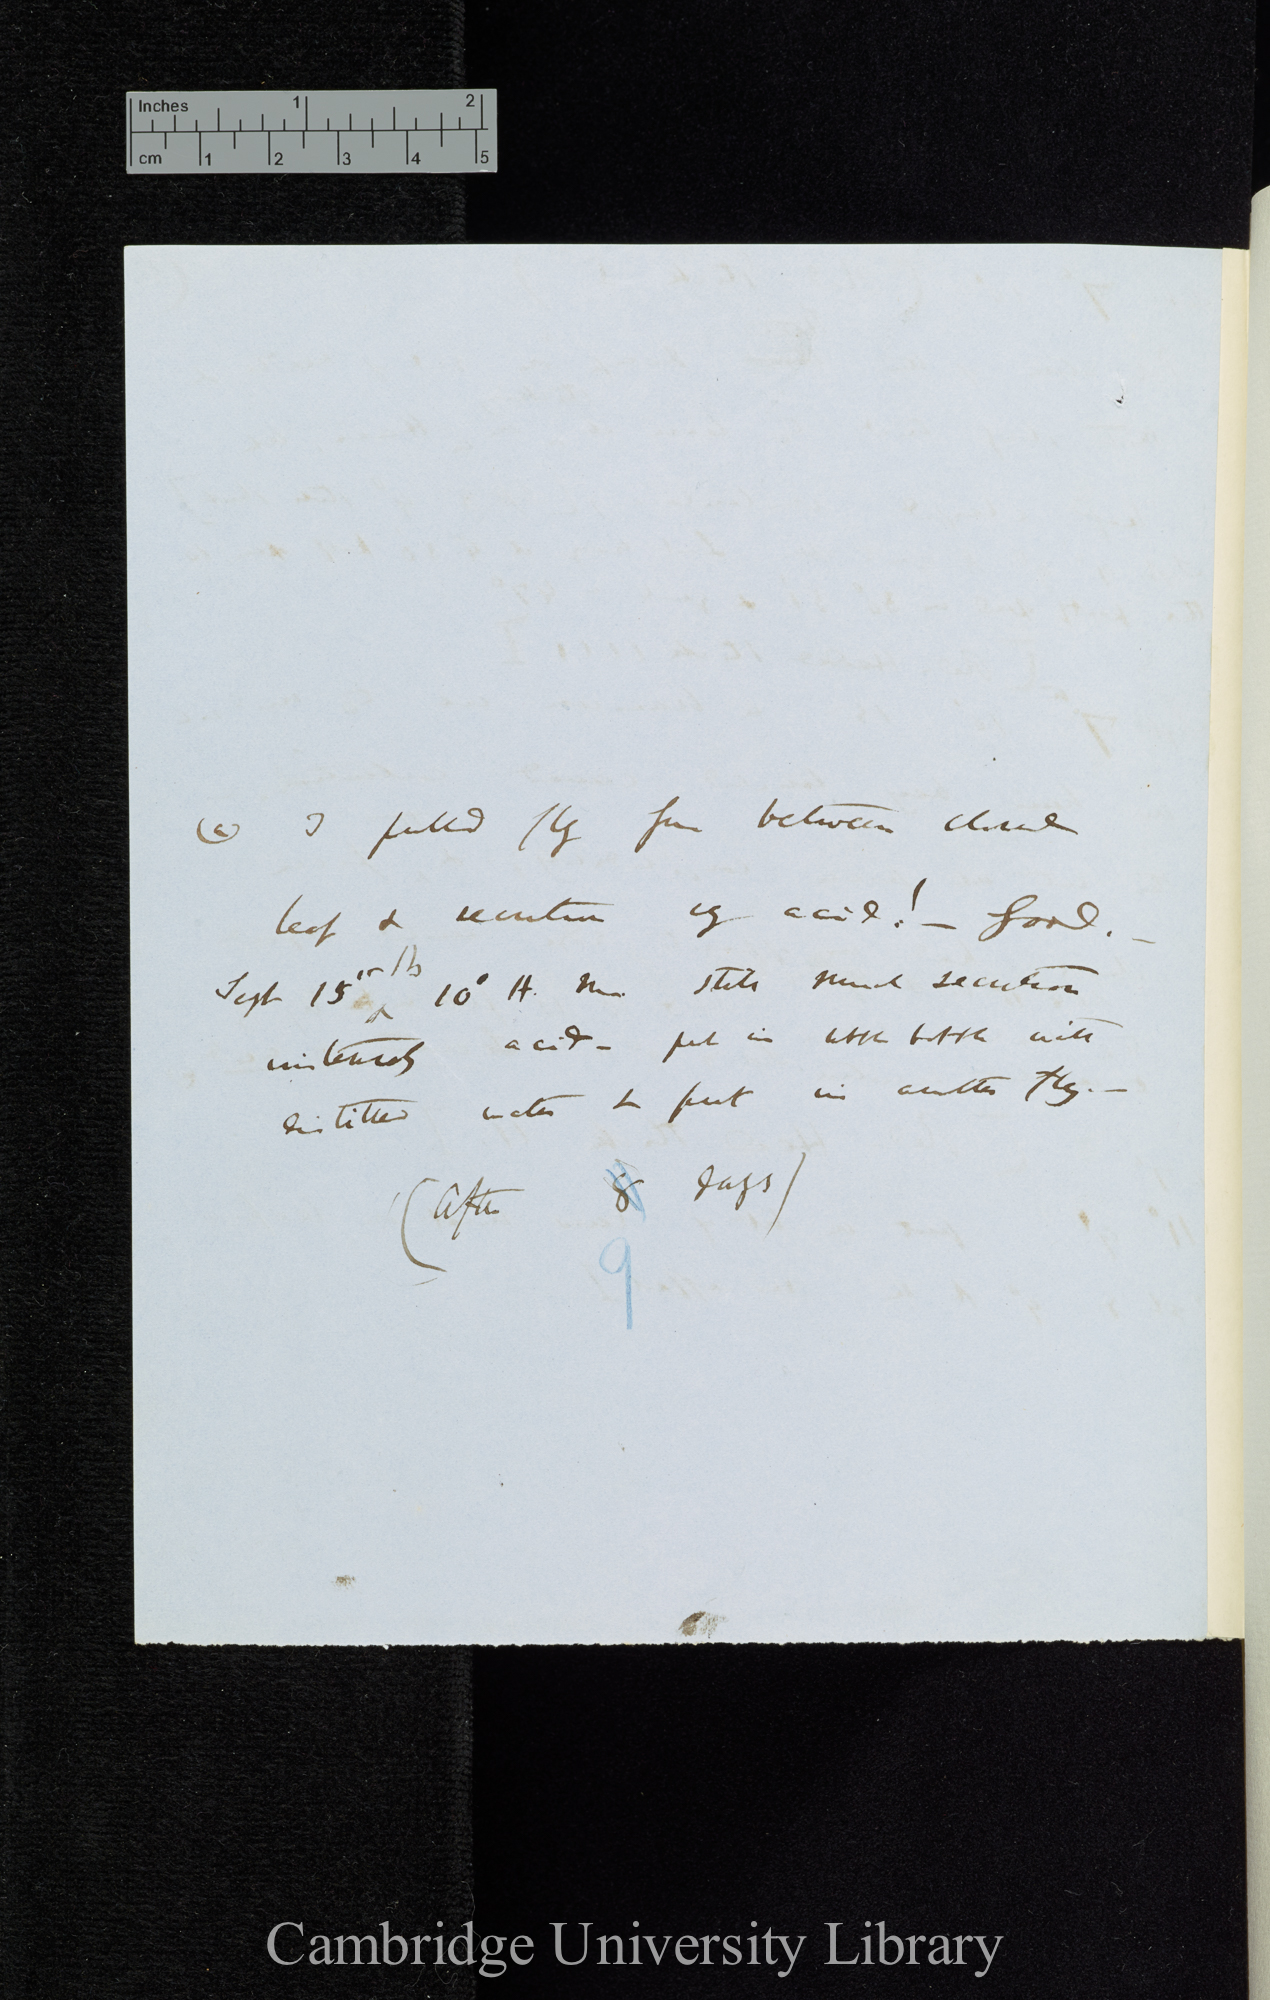 Inches 1 2
cm 1 2 3 4 5
(a) I pulled fly from between closed
leaf & secretion acid! — Good. —
Sept 15th 10° still much secretion
acid — put in little bottle with
distilled water & put in another fly. —
(After 8 days)
9
Cambridge University Library